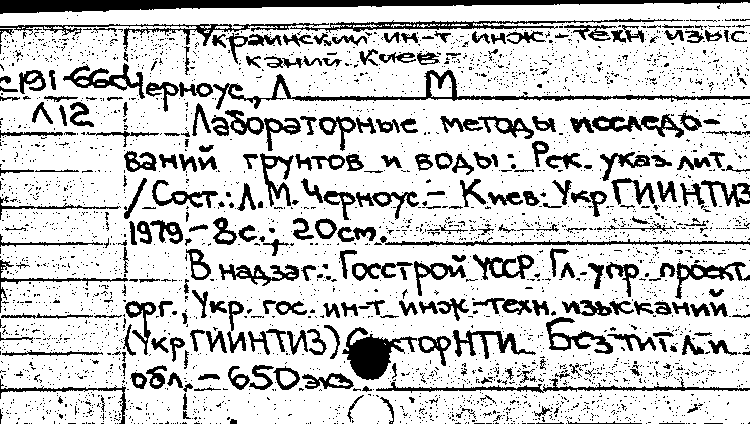 Украинский ин-т инж.-техн. изыс
каний. Киев.-
с191-66с4
Черноус, Л М
Л12
Лабораторные методы исследо-
ваний грунтов и воды: Рек. указ. лит.
/ Сост.: Л.М. Черноус.- Киев: УкрГИИНТИЗ
1979.- 8с.; 20см.
В надзаг.: Госстрой УССР. Гл. упр. проект.
орг., Укр. гос. ин-т инж.-техн. изысканий
(УкрГИИНТИЗ). Сектор НТИ. Без тит. л. и
обл. - 650 экз